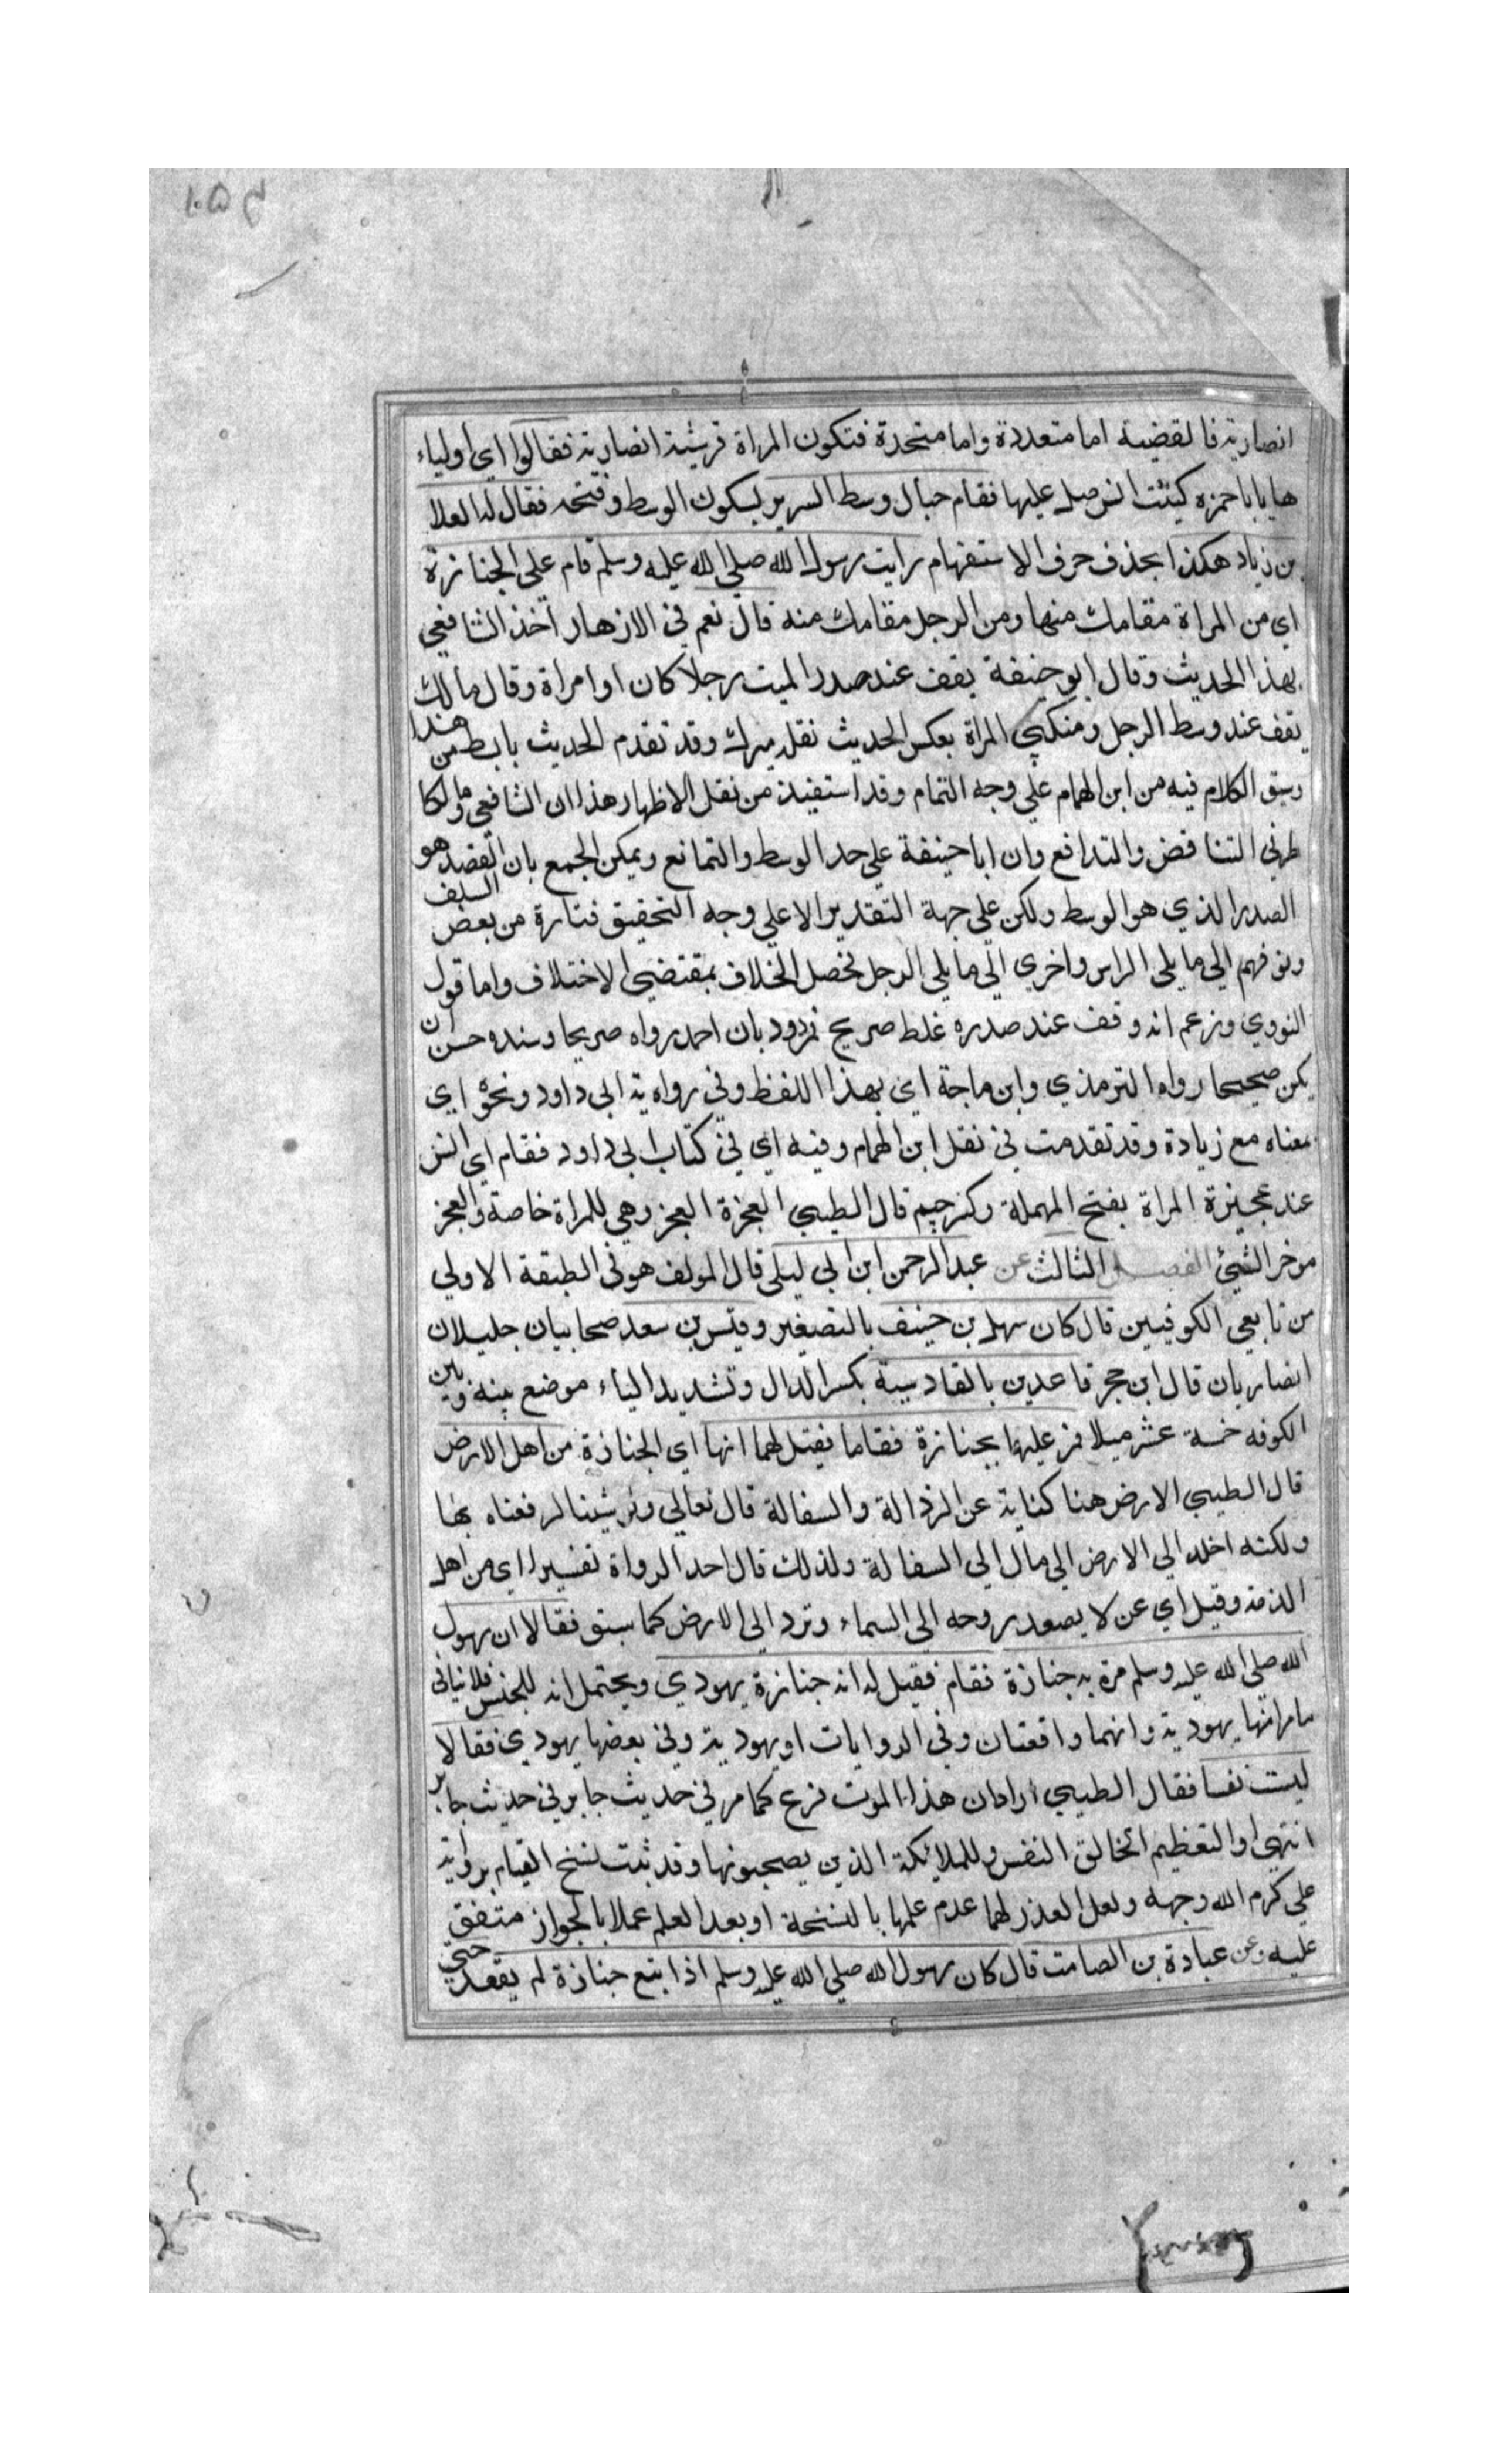 انصارية فالقضية اما متعددة واما متحدة فتكون المراة قرشية انصارية فقالوا اي اولياء
ها يا ابا حمزه كنيت انس صل عليها فقام حيال وسط السرير بسكون الوسط وفتحه فقال له العلا
بن زياد هكذا بحذف حرف الاستفهام رايت رسول الله صلي الله عليه وسلم قام على الجنازة
اي من المراة مقامك منها ومن الرجل مقامك منه قال نعم في الازهار اخذ الشافعي
بهذا الحديث وقال ابو حنيفة يقف عند صدر الميت رجلا كان او امراة وقال مالك
يقف عند وسط الرجل ومنكبي المراة بعكس الحديث نقله ميرك وقد تقدم الحديث بابسط من هذا
وسبق الكلام فيه من ابن الهمام علي وجه التمام وقد استفيد من نقل الاظهار هذا ان الشافعي ومالكا
طرفي التناقض والتدافع وان ابا حنيفة علي حد الوسط والتمانع ويمكن الجمع بان القصد هو
الصدر الذي هو الوسط ولكن علي جهة التقدير لا علي وجه التحقيق فتارة من بعض السلف
وقوفهم الي ما يلي الراس واخري الي ما يلي الرجل فحصل الخلاف بمقتضي الاختلاف واما قول
النووي وزعم انه وقف عند صدره غلط صريح فمردود بان احمد رواه صريحا وسنده حسن ان
يكن صحيحا رواه الترمذي وابن ماجة اي بهذا اللفظ وفي رواية ابي داود ونحوه اي
بمعناه مع زيادة وقد تقدمت في نقل ابن الهمام وفيه اي في كتاب ابي داود فقام اي انس
عند عجيزة المراة بفتح المهملة وكسر جيم قال الطيبي العجزة العجز وهي للمراة خاصة والعجز
موخر الشئ الفصل الثالث عن عبد الرحمن ابن ابي ليلي قال المولف هو في الطبقة الاولي
من تابعي الكوفيين قال كان سهل بن حنيف بالتصغير وقيس بن سعد صحابيان جليلان
انصاريان قال ابن حجر قاعدين بالقادسية بكسر الدال وتشديد الياء موضع بينه وبين
الكوفه خمسة عشر ميلا فمر عليهما بجنازة فقاما فقيل لهما انها اي الجنازة من اهل الارض
قال الطيبي الارض هنا كناية عن الرذالة والسفالة قال تعالي ولو شينا لرفعناه بها
ولكنه اخلد الي الارض الي مال الي السفالة ولذلك قال احد الرواة تفسيرا اي من اهل
الذمة وقيل اي عن لا يصعد روحه الي السماء وترد الي الارض كما سبق فقالا ان رسول
الله صلي الله عليه وسلم مرة به جنازة فقام فقيل له انه جنازة يهودي ويحتمل انه للجنس فلا ينافي
ما مر انها يهودية وانهما واقعتان وفي الروايات او يهودية وفي بعضها يهودي فقالا
ليست نفسا فقال الطيبي اراد ان هذا الموت فزع كما مر في حديث جابر في حديث جابر
انتهي او التعظيم لخالق النفس وللملائكة الذين يصحبونها وقد ثبت نسخ القيام برواية
علي كرم الله وجهه ولعل العذر لهما عدم علمها بالنسخة او بعد العلم عملا بالجواز متفق
عليه وعن عبادة بن الصامت قال كان رسول الله صلي الله عليه وسلم اذا تبع جنازة لم يقعد حتي